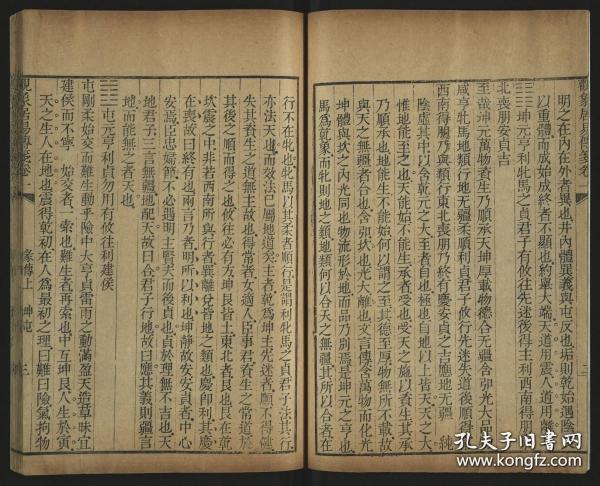 觀象居易傳箋卷一
二
明之在内在外者異也井内體巽義與屯反也垢則乾始遇陰
以重體而成始成終者不顯也約舉大端天道用震人道用離
坤元亨利牝馬之貞君子有攸往先迷後得主利西南得朋東
北喪朋安貞吉
至哉坤元萬物資生乃順承天坤厚載物德合无疆含弘光大品物
咸亨牝馬地類行地无疆柔順利貞君子攸行先迷失道後順得常
西南得朋乃與類行東北喪朋乃終有慶安貞之吉應地无疆
陰虛其中以含乾元之大至者自也極也自地以上皆天天之大
惟地能至之也天能始不能生承者受也受天之施以資生其承
乃順承也地能生不能始何以謂之至其德至厚物无所不載故
與天之无疆者合也含弘坎也光大離也文言傳含萬物而化光
坤體與坎内光同也物流形於地而品乃别焉是坤元之亨也
馬爲乾象而牝則地之類何以合天之無疆其所以合者在
行不在牝也牝馬以其柔者順行是謂利牝馬之貞君子法其行
亦法天也而效法已屬地道矣主者乾爲坤主先迷者順不得健
失其資生之道無主故也得常者女適人臣事君資生之常道於
其後之順而得之也攸往必有方坤艮皆土東北者艮也艮在乾
坎震之中非若西南所與行者巽離兑皆地之類也慶卽利其慶
在喪故曰終有也兩言乃者明所以利也坤靜故安安貞者中心
安焉臣忠婦節不必遇明主賢夫而後貞也貞於理無不吉也天
地君子三言無疆地配天故曰合君子行地故曰應其義則疆言
地而能無之者天也
屯元亨利貞勿用有攸往利建侯
屯剛柔始交而難生動乎險中大亨貞雷雨之動滿盈天造草昧宜
建侯而不寧
始交者一索也難生者再索也中互坤艮人生於寅
天之生人在地也震得乾初在人爲最初之理曰難曰險氣拘物
觀象居易傳箋卷一
彖傳上
坤屯
三
孔夫子旧书网
www.kongfz.com